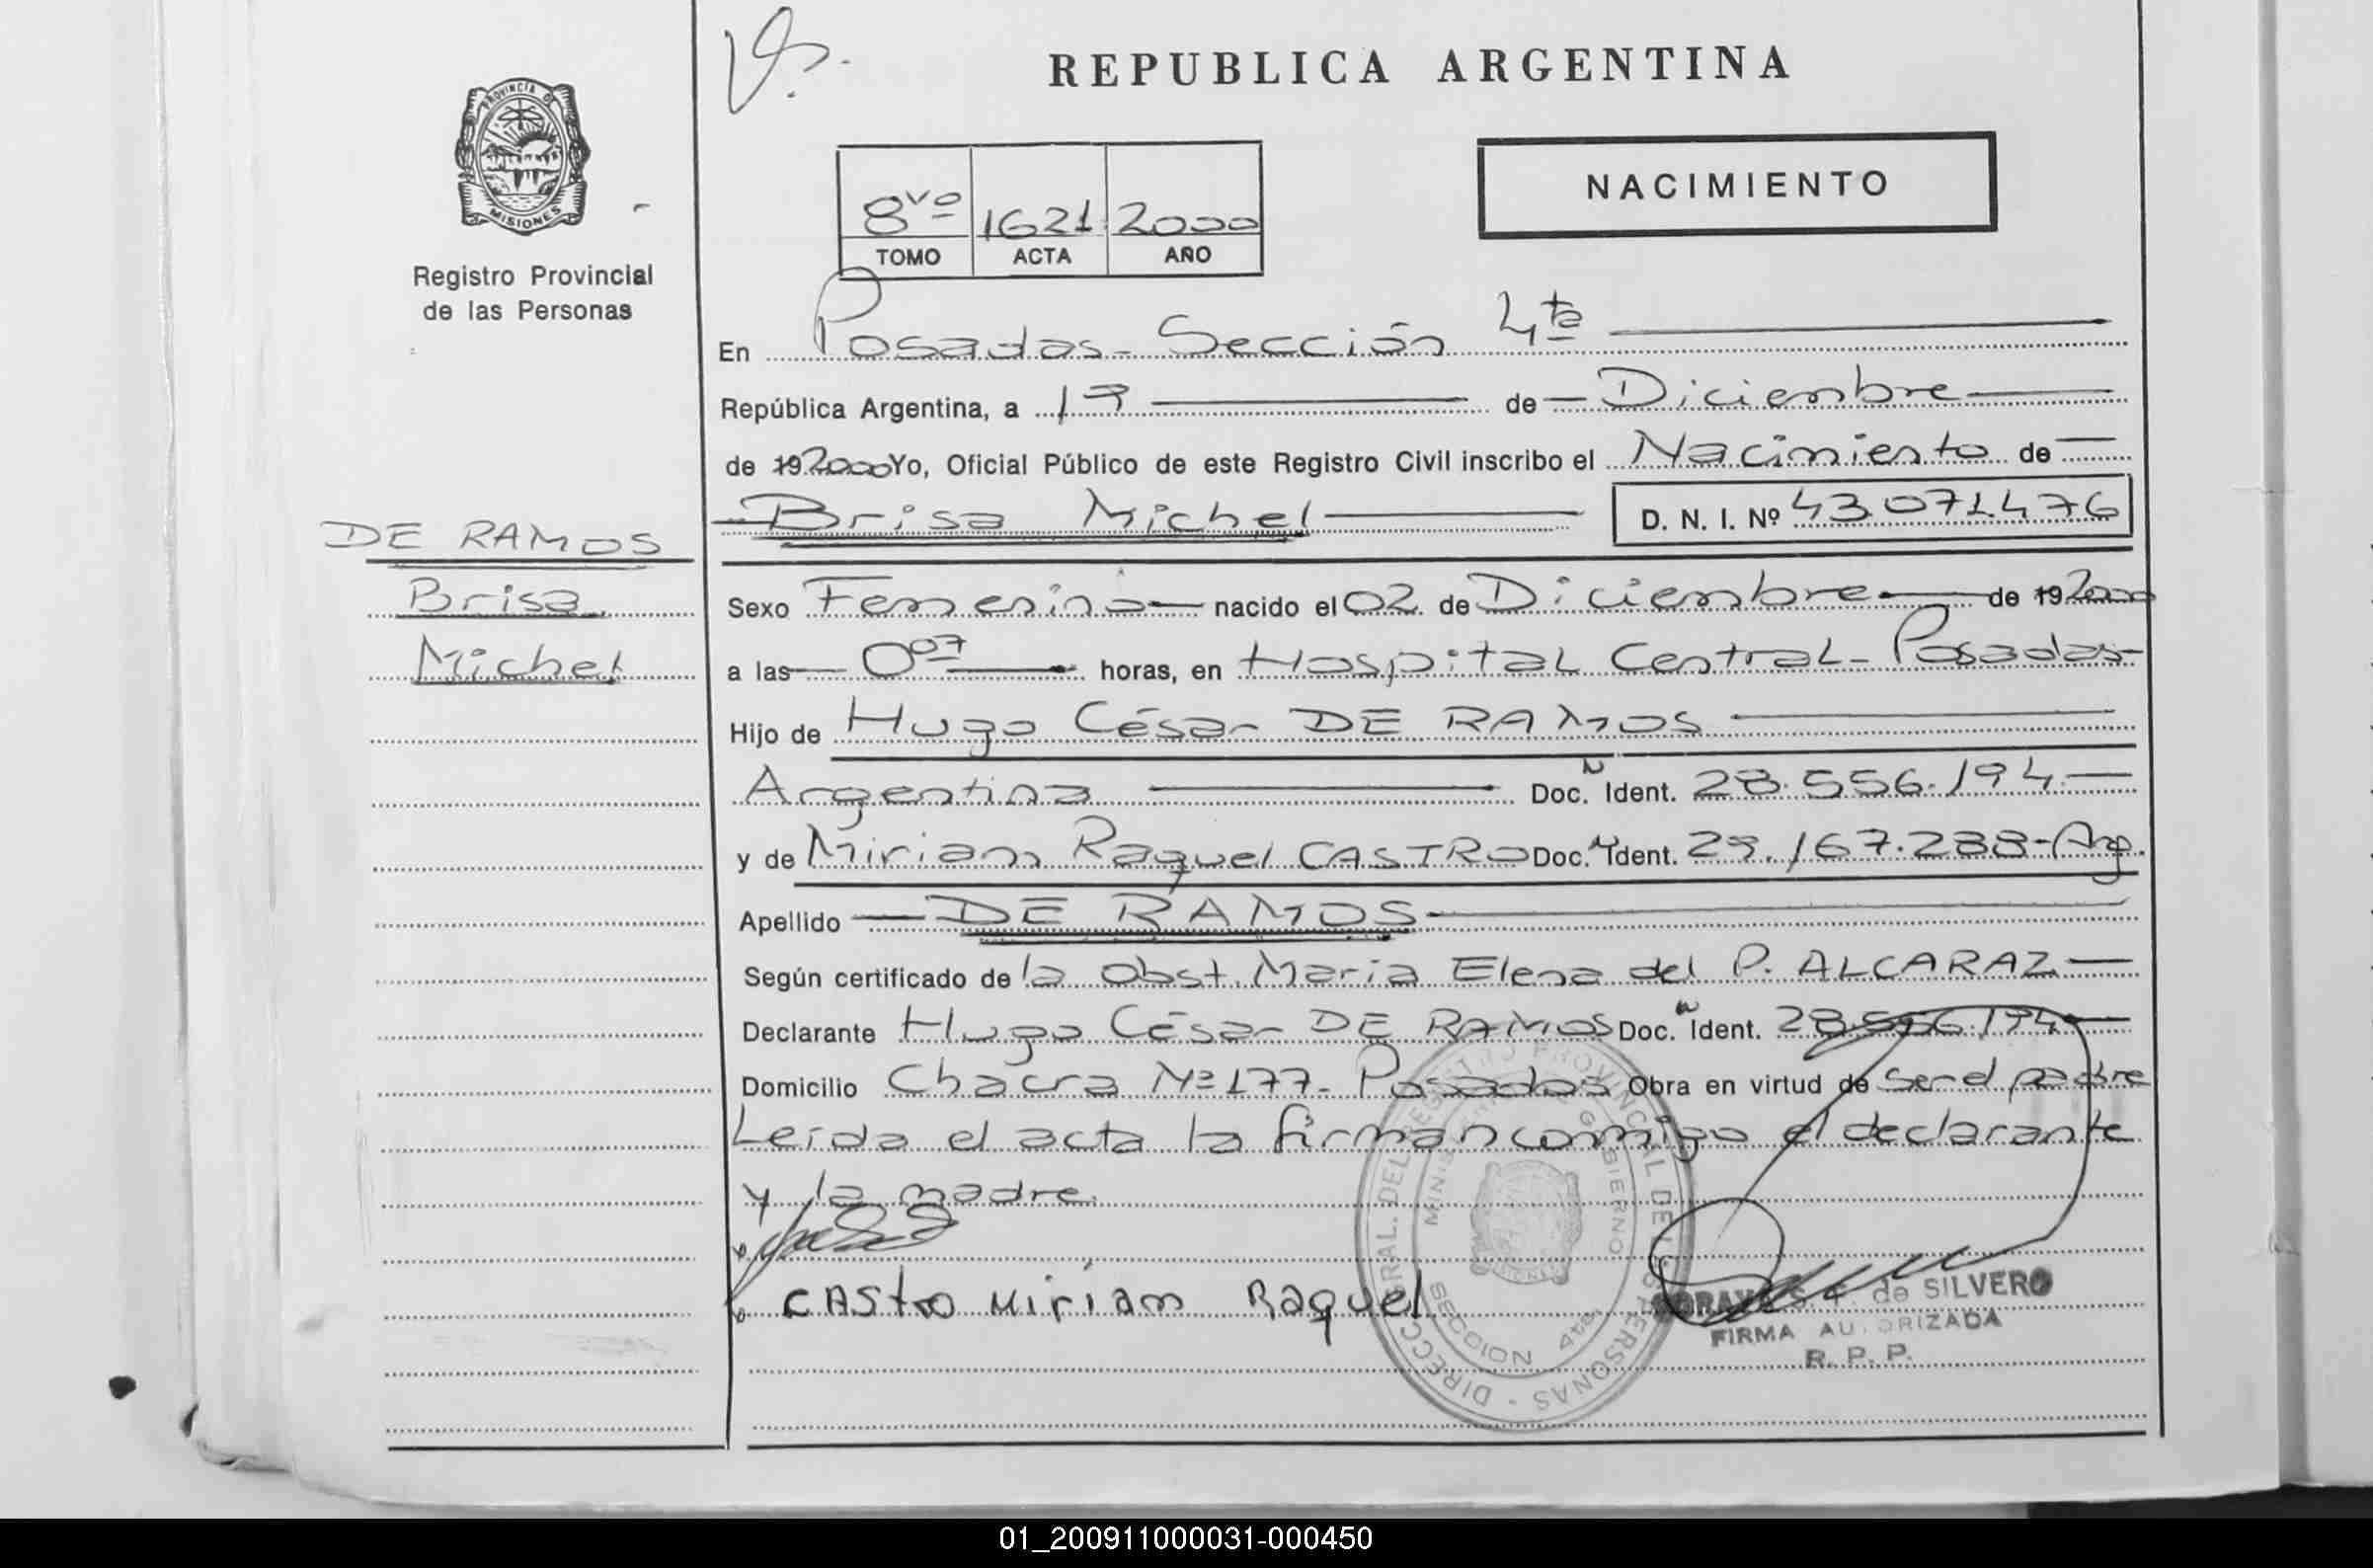 REPUBLICA ARGENTINA
PROVINCIA DE MISIONES
Registro Provincial
de las Personas
8vo 1621 2000
TOMO ACTA AÑO
NACIMIENTO
En Posadas - Sección 4ta
República Argentina, a 13 de Diciembre
de 19 2000 Yo, Oficial Público de este Registro Civil inscribo el Nacimiento de
Brisa Michel D. N. I. Nº 43.071.476
DE RAMOS
Brisa
Michel
Sexo Femenino nacido el 02 de Diciembre de 19 2000
a las 0 07 horas, en Hospital Central - Posadas -
Hijo de Hugo César DE RAMOS
Argentina Doc. N Ident. 28.556.194.
y de Miriam Raquel CASTRO Doc. N Ident. 29.167.288 - Arg.
Apellido DE RAMOS
Según certificado de la Obst. Maria Elena del P. ALCARAZ
Declarante Hugo César DE RAMOS Doc. N Ident. 28.556.194
Domicilio Chacra Nº 177 - Posadas Obra en virtud de ser el padre
Leída el acta la firman conmigo el declarante
y la madre.
CAStro Miriam Raquel
DEL REGISTRO PROVINCIAL DE LAS PERSONAS
SECCION 4ta
S. F. de SILVERO
FIRMA AUTORIZADA
R. P. P.
01_200911000031-000450